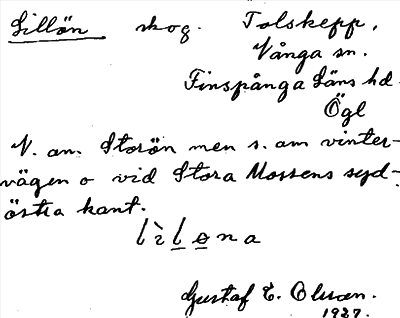 Lillön skog. Tolskepp,
Vånga sn.
Finspånga Läns hd.
Ögl
N. om. Storön men s. om vinter-
vägen o vid Stora Mossens syd-
östra kant.
lìlona
Gustaf E. Olsson.
1927.